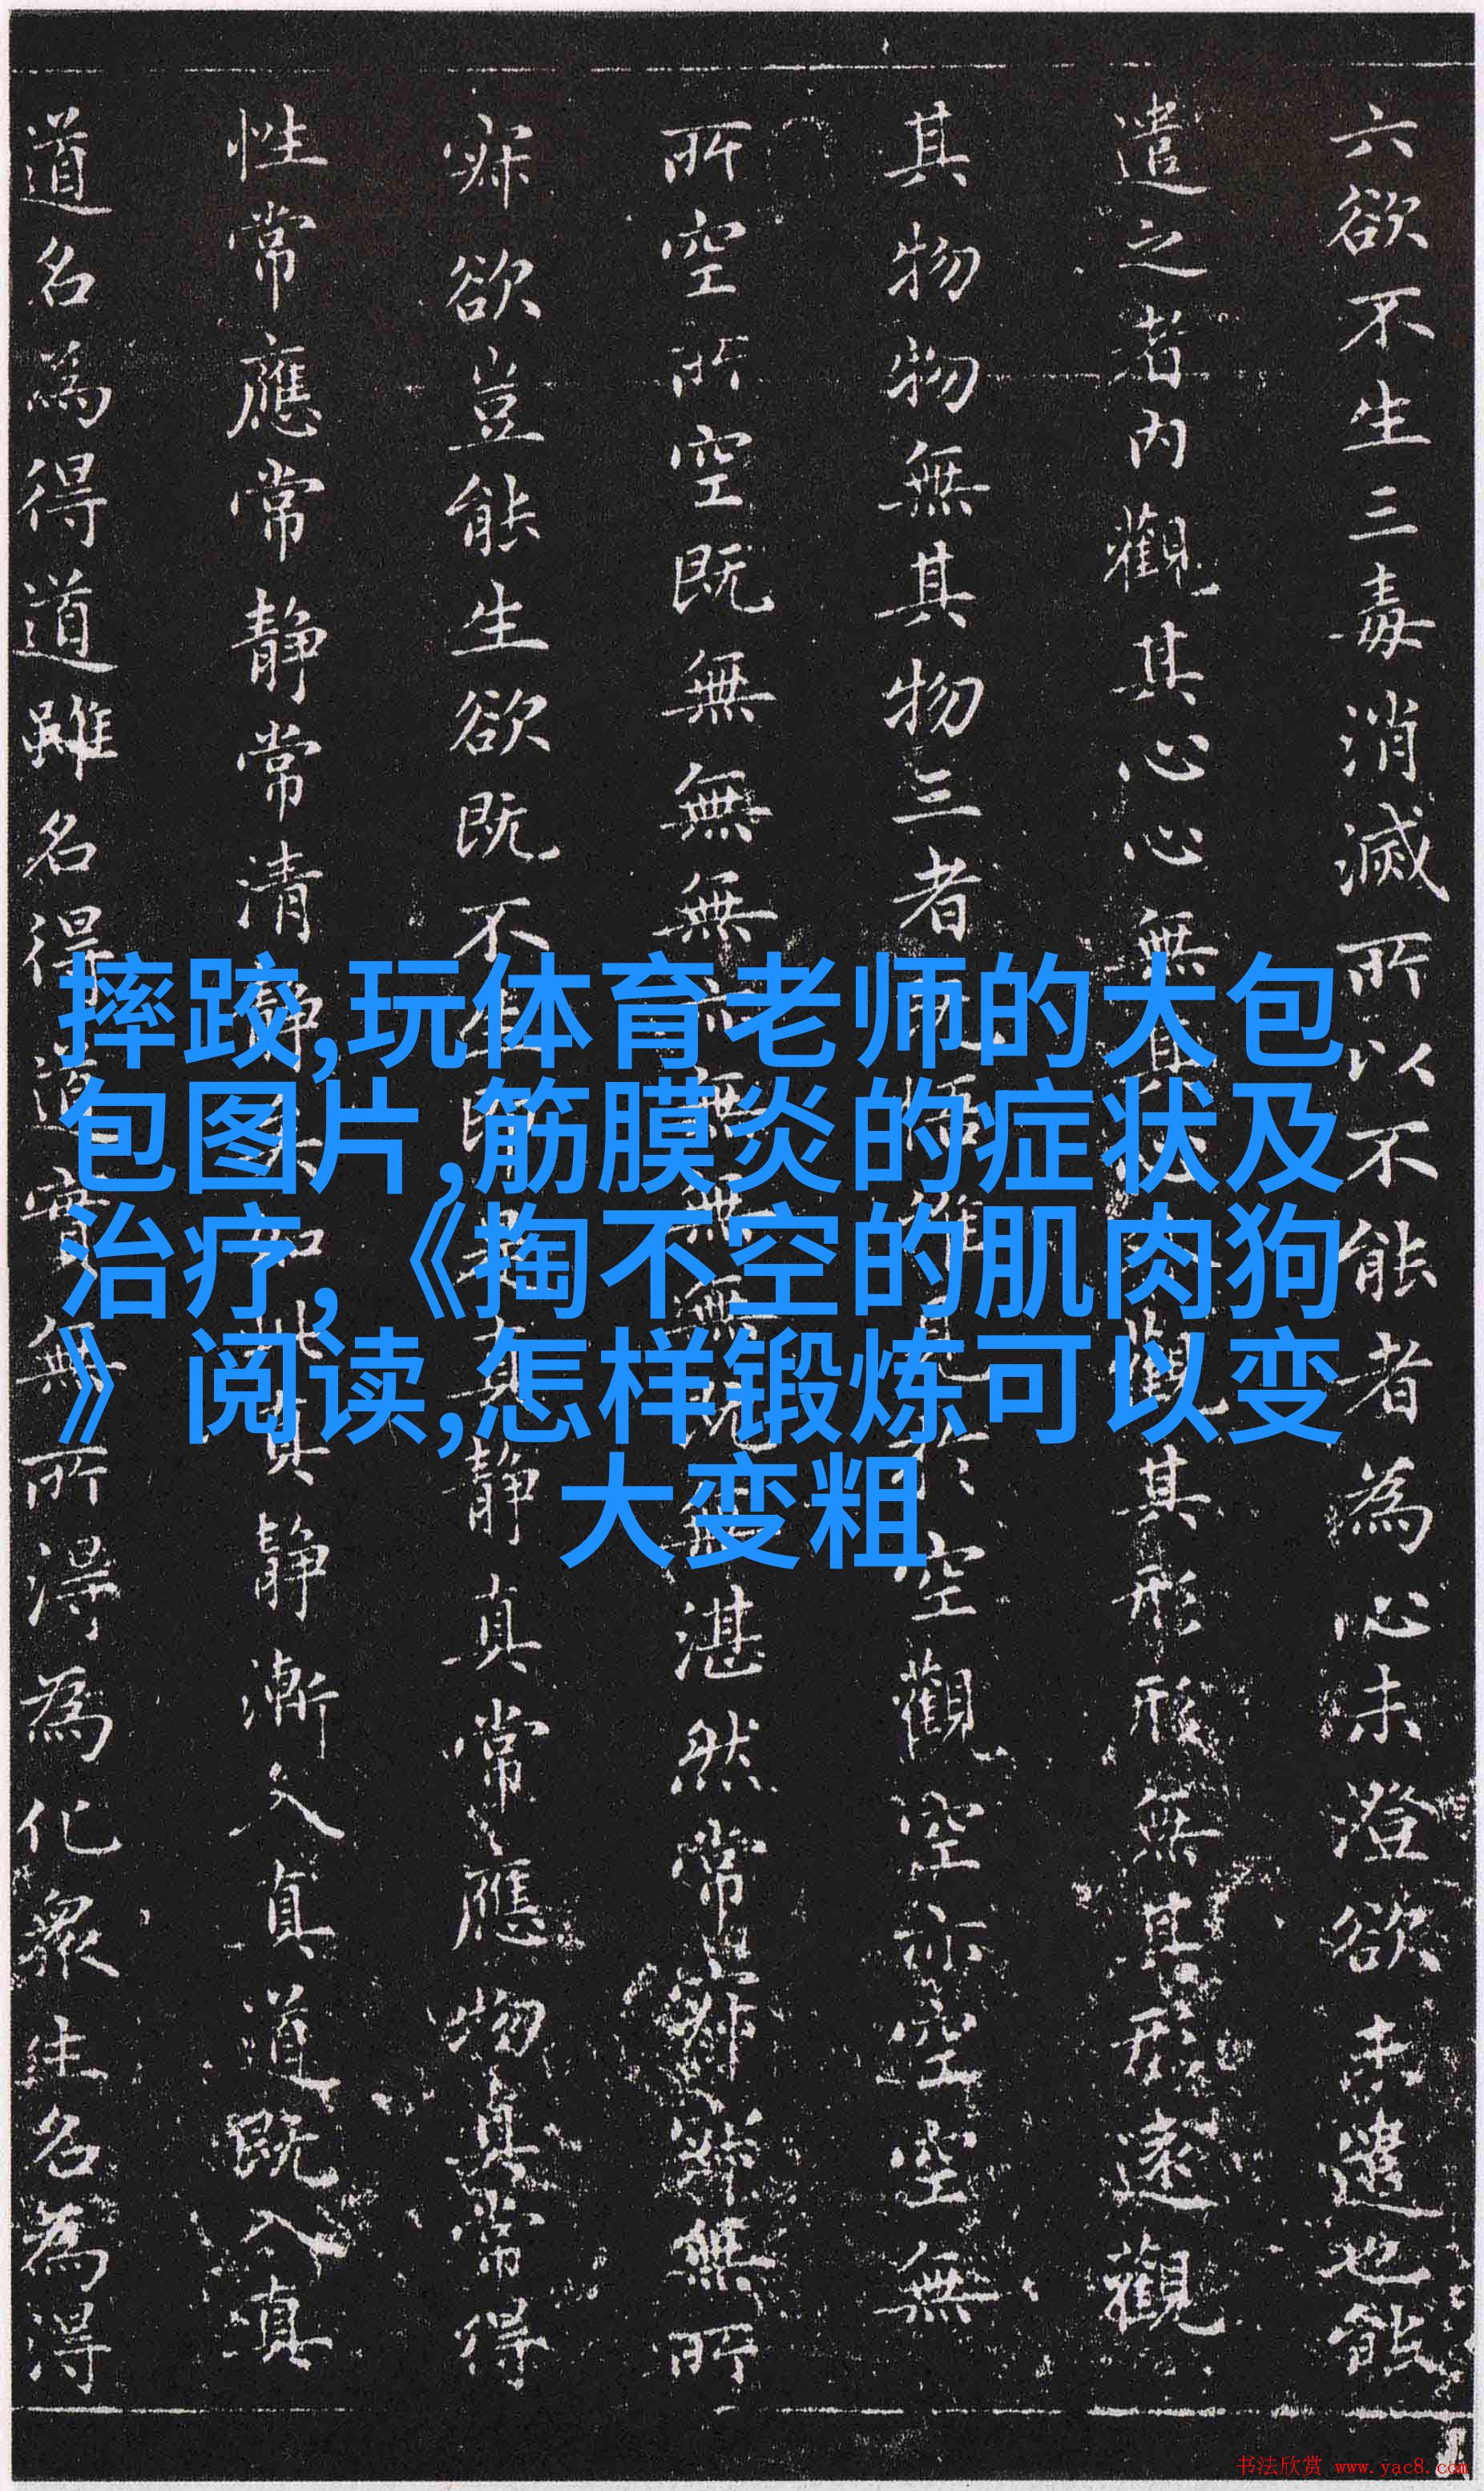 六欲不生三毒消滅所以不能者為心未澄欲未遣也能
遣之者内觀其心心無其心外觀其形形無其形遠觀
其物物無其物三者既悟唯見於空觀空亦空空無
所空所空既無無無亦無無無既無湛然常寂寂無所
寂欲豈能生欲既不生即是真静真常應物真常得
性常應常静常清静矣如此真静漸入真道既入真
道名為得道雖名得道實無所得為化衆生名為得
摔跤,玩体育老师的大包
包图片,筋膜炎的症状及
治疗,《掏不空的肌肉狗
》阅读,怎样锻炼可以变
大变粗
书法欣赏 www.yac8.com